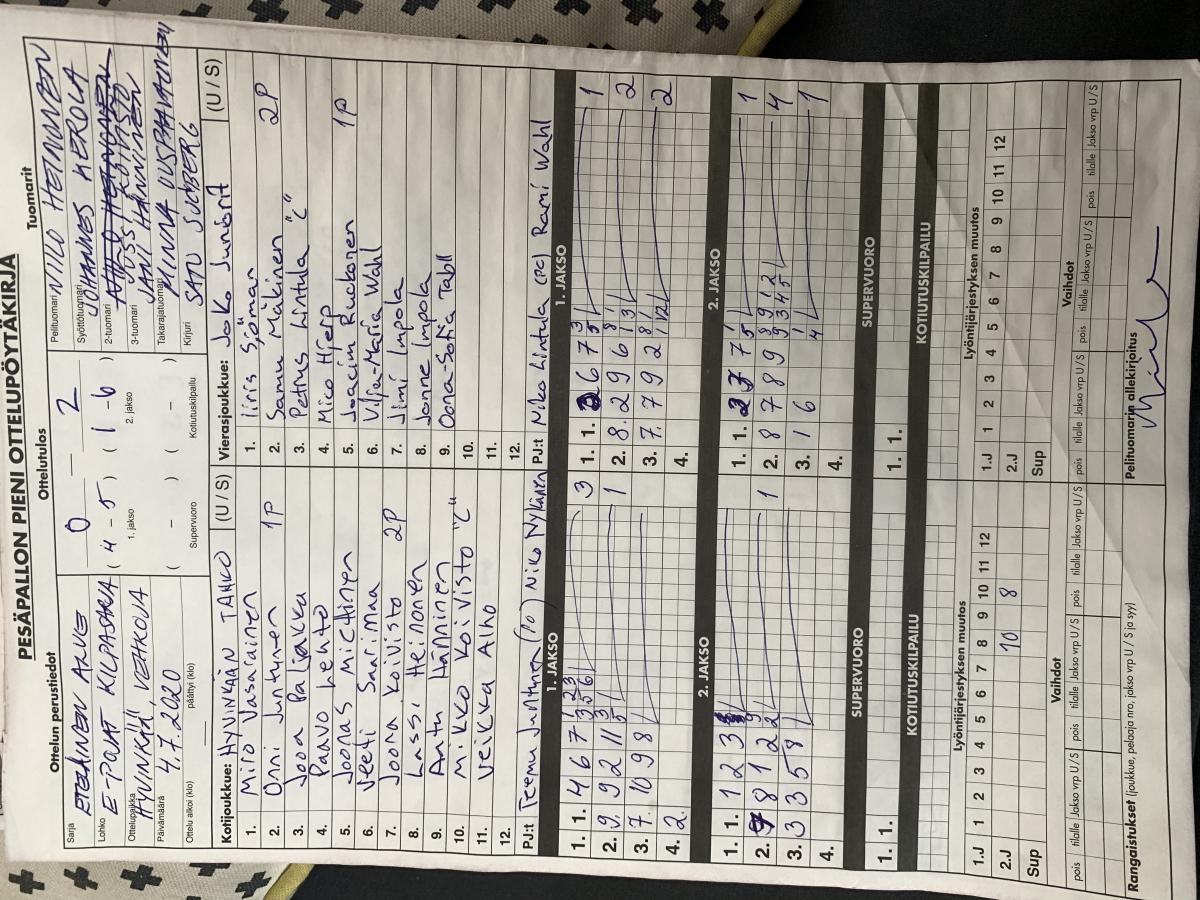 PESÄPALLON PIENI OTTELUPÖYTÄKIRJA
Ottelun perustiedot
Ottelutulos
Tuomarit
Sarja ETELÄINEN ALUE
Lohko E-POJAT KILPASARJA
Ottelupaikka HYVINKÄÄ, VEHKOJA
Päivämäärä 4.7.2020
Ottelu alkoi (klo) päättyi (klo)
0 — 2
( 4 - 5 ) ( 1 - 6 )
1. jakso 2. jakso
( - ) ( - )
Supervuoro Kotiutuskilpailu
Pelituomari NIILO HEINONEN
Syöttötuomari JOHANNES KEROLA
2-tuomari JUSSI KOIVISTO
3-tuomari JANI HÄNNINEN
Takarajatuomari MINNA UUSPAAVALNIEMI
Kirjuri SATU SUCBERG
Kotijoukkue: HYVINKÄÄN TAHKO (U / S)
1. Miro Vasarainen
2. Onni Juntunen 1P
3. Jooa Paljakka
4. Paavo Lehto
5. Joonas Miettinen
6. Veeti Saarimaa
7. Joona Koivisto 2P
8. Lassi Heinonen
9. Anttu Hänninen
10. Mikko Koivisto "C"
11. Veikka Alho
12.
PJ:t Teemu Juntunen (PJ) Niko Nykänen
Vierasjoukkue: JoKo Juniorit (U / S)
1. Iiris Sjöman
2. Samu Mäkinen 2P
3. Petrus Lintula "C"
4. Mico Hierp
5. Joacim Ruokonen 1P
6. Vilja-Maria Wahl
7. Jimi Impola
8. Janne Impola
9. Oona-Sofia Tabll
10.
11.
12.
PJ:t Niko Lintula (PJ) Rami Wahl
1. JAKSO
1. 1. 4 6 7 3
2. 9. 9 2 11 1
3. 7. 10 9 8
4. 2.
1. JAKSO
1. 1. 6 7 1
2. 8. 2 9 6 2
3. 7. 7 9 2 2
4.
2. JAKSO
1. 1. 1 2 3
2. 8 1 2 1
3. 3 3 5 8
4.
2. JAKSO
1. 1. 7 1
2. 8 7 8 9 4
3. 1 6 1
4.
SUPERVUORO
1. 1.
SUPERVUORO
1. 1.
KOTIUTUSKILPAILU
KOTIUTUSKILPAILU
Lyöntijärjestyksen muutos
1.J 1 2 3 4 5 6 7 8 9 10 11 12
2.J 10 8
Sup
Lyöntijärjestyksen muutos
1.J 1 2 3 4 5 6 7 8 9 10 11 12
2.J
Sup
Vaihdot
pois tilalle Jakso vrp U / S pois tilalle Jakso vrp U / S pois tilalle Jakso vrp U / S
Vaihdot
pois tilalle Jakso vrp U / S pois tilalle Jakso vrp U / S pois tilalle Jakso vrp U / S
Rangaistukset (joukkue, pelaaja nro, jakso vrp U / S ja syy)
Pelituomarin allekirjoitus